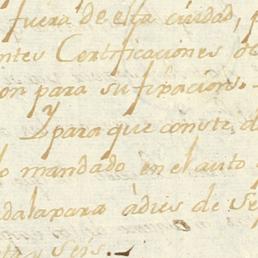 fuera de esta ciudad, p
ntes Certificaciones
on para su fixacion. -
Y para que conste, d
o mandado en el auto
dalaxara à dies de Se
y seis. -